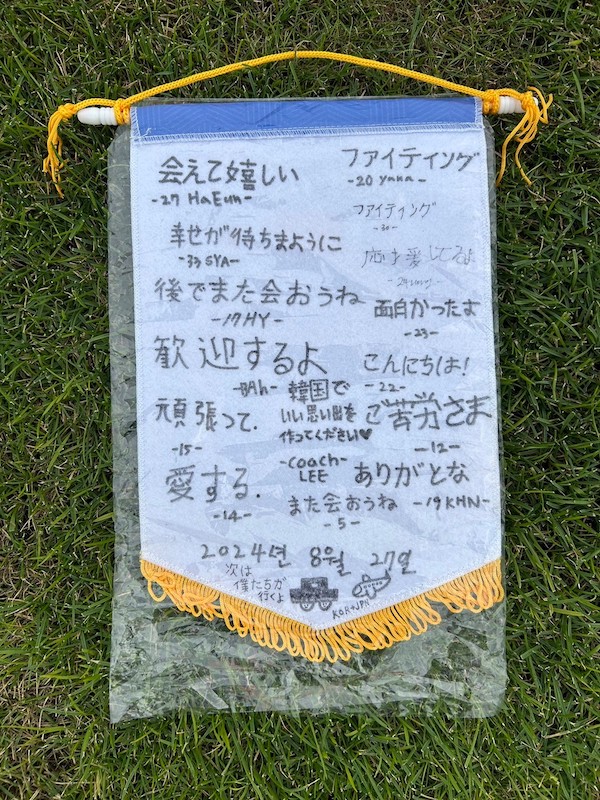 会えて嬉しい
-27 HaEun-
幸せが待ちまようにこ
-33 SYA-
後でまた会おうね
-17 HY-
歓迎するよ
-BAh-
頑張って.
-15-
愛する.
-14-
ファイティング
-20 yuna-
ファイティング
-30-
愛してるよ
面白かったよ
-23-
こんにちは!
-22-
韓国で
いい思い出を
作ってください♥
-coach-
LEE
ご苦労さま
-12-
ありがとな
-19 KHN-
また会おうね
-5-
2024년 8월 27일
次は
僕たちが
行くよ
KOR→JPN